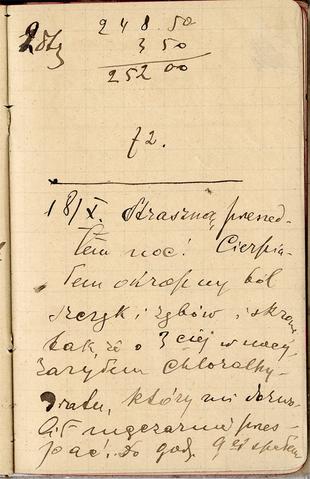 248.50
3 50
252 00
72.
18/X. Straszną przed-
łem noc! Cierpia-
łem okropny ból
szczęk i zębów i skroni
tak, że o 3 ciej w nocy
zażyłem chloralhy-
dratu, który mi dozwo-
lił męczarnie przes-
pać! do godz. 9 ej spałem